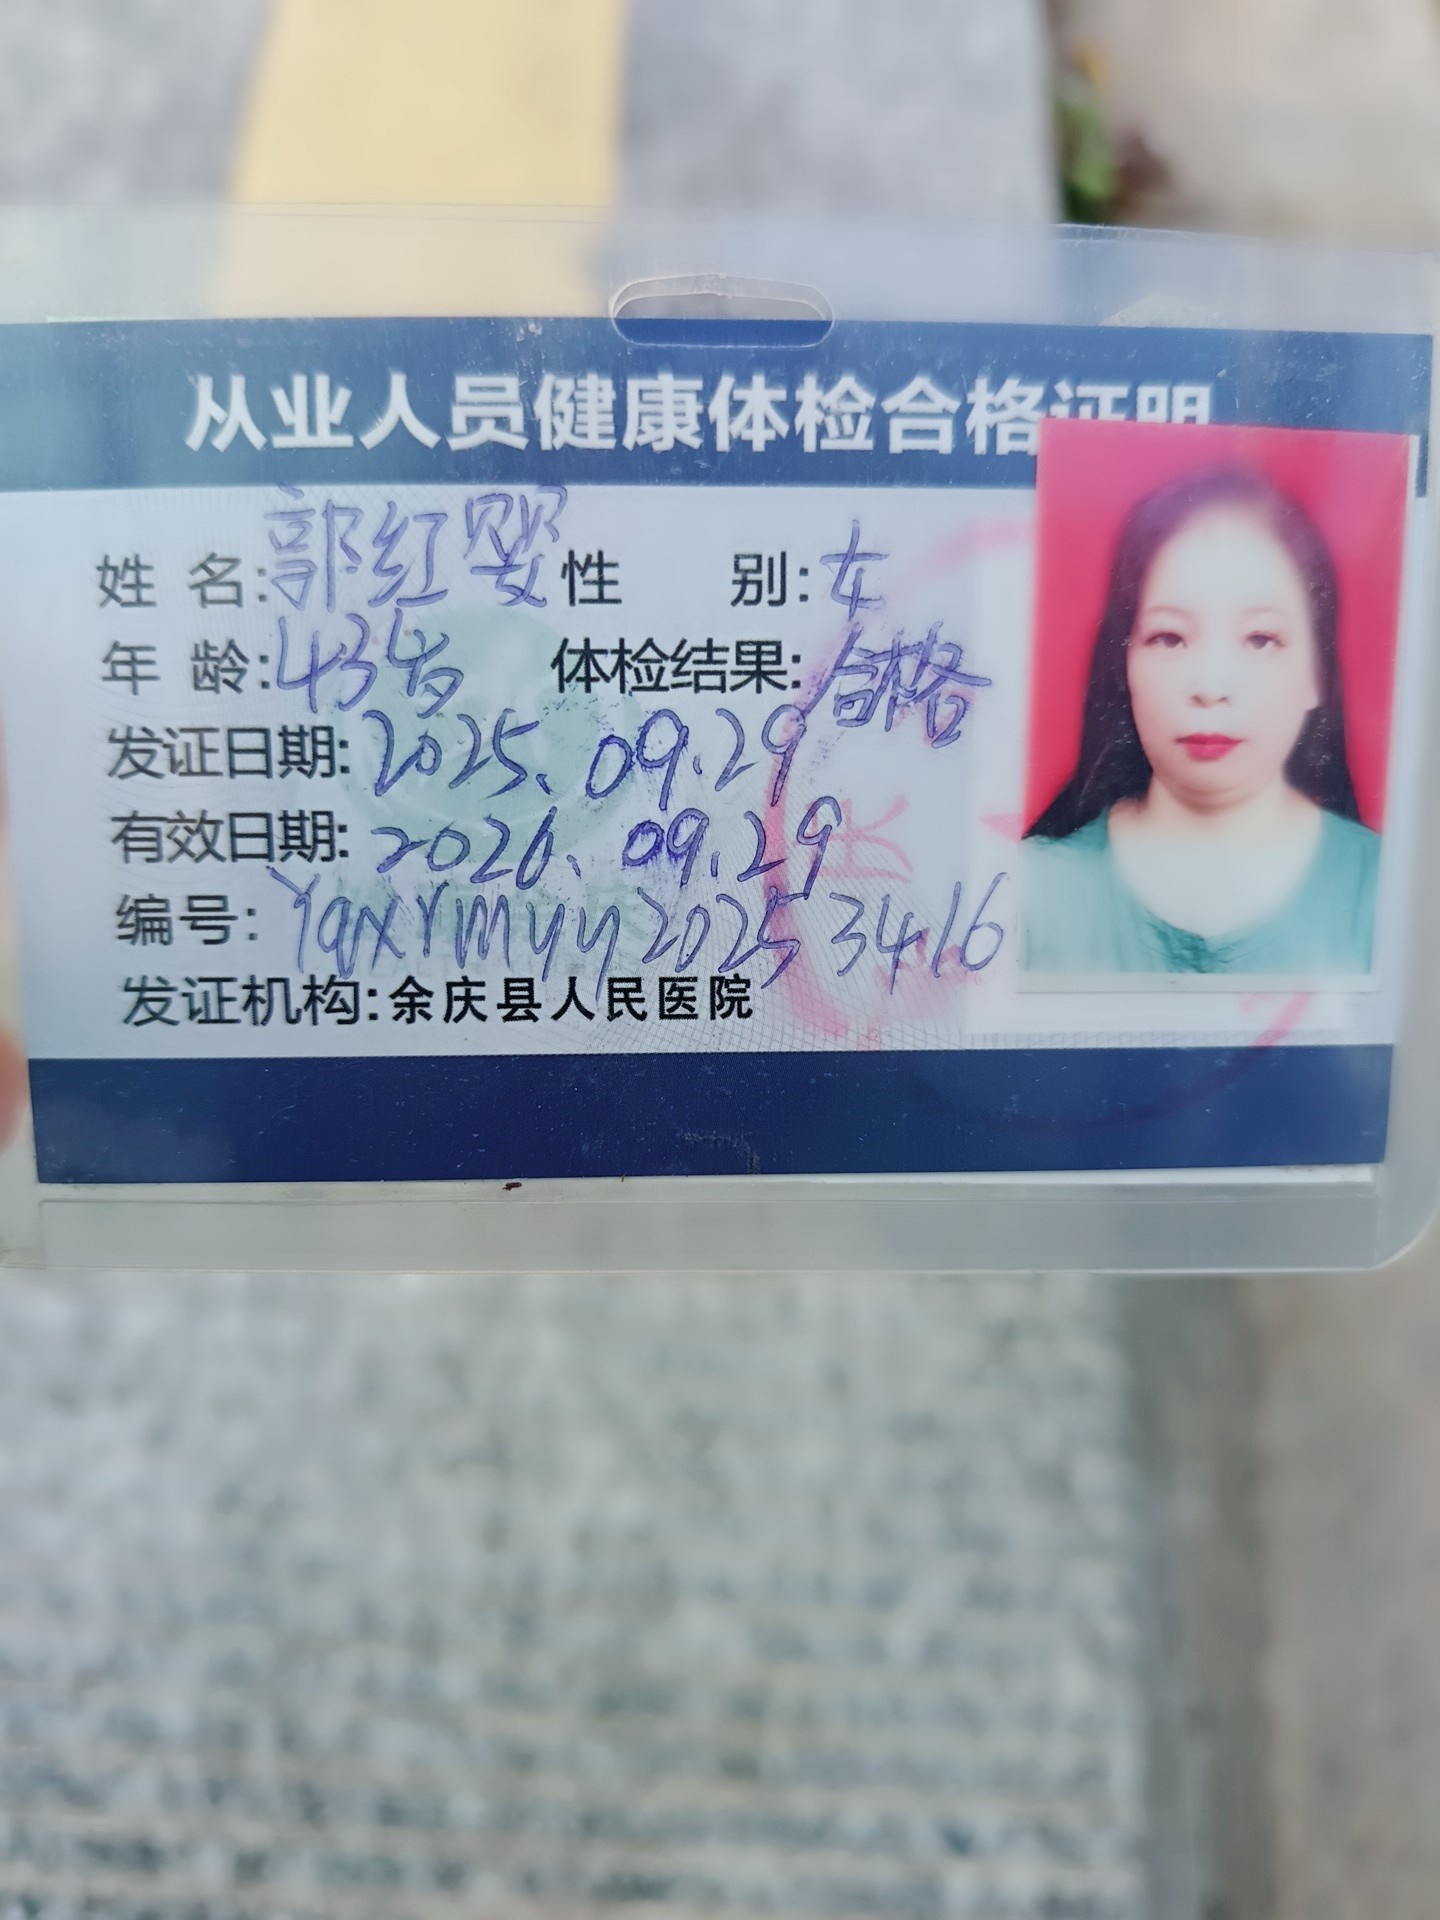 从业人员健康体检合格证明
姓 名:郭红婴 性 别:女
年 龄:43岁 体检结果:合格
发证日期:2025.09.29
有效日期:2026.09.29
编号:YqxrmYy20253416
发证机构:余庆县人民医院